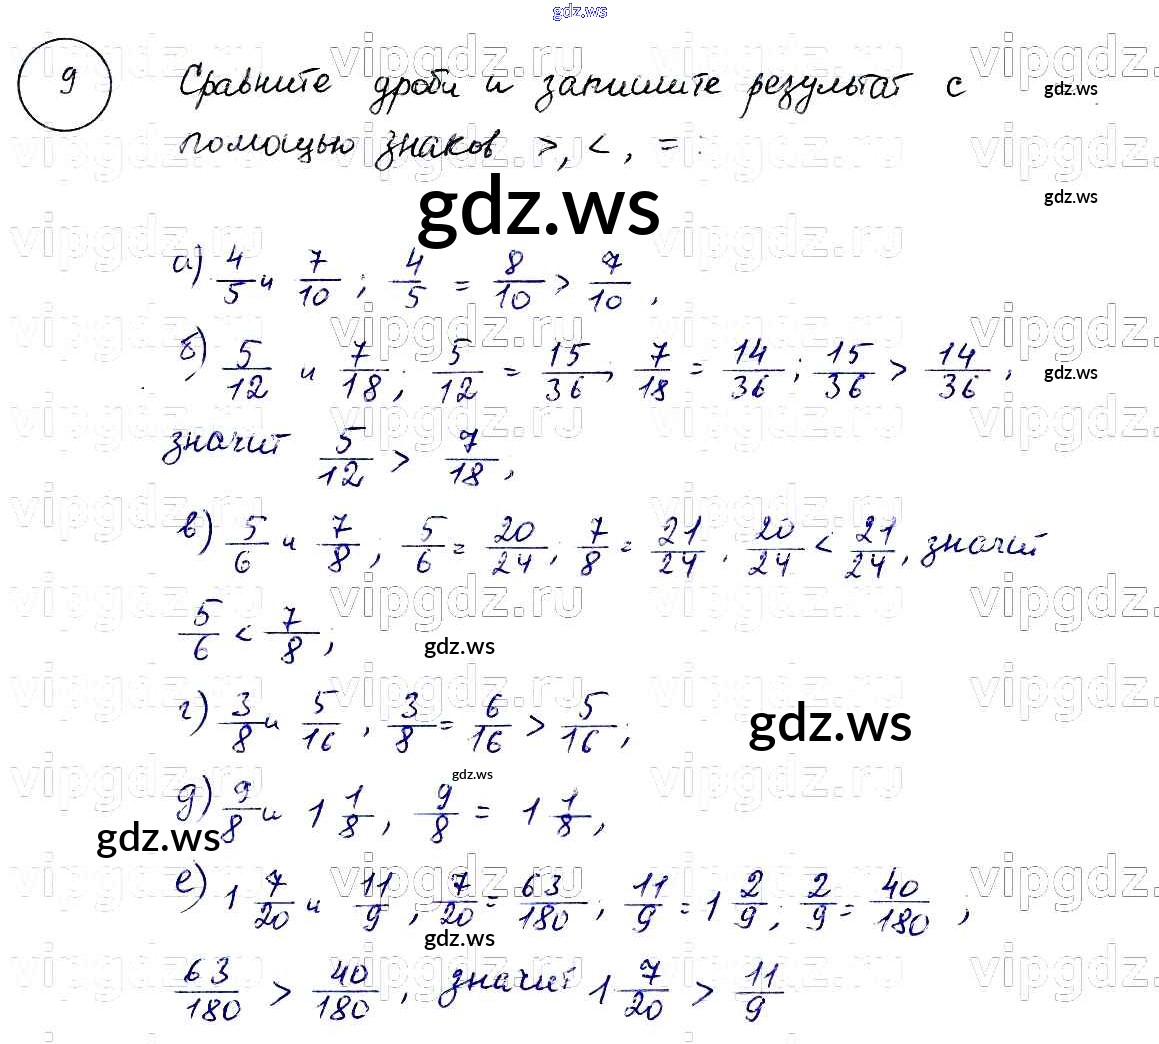 gdz.ws
9 Сравните дроби и запишите результат с
помощью знаков >, <, = :
gdz.ws
gdz.ws
gdz.ws
а) 4/5 и 7/10 ; 4/5 = 8/10 > 7/10 ,
б) 5/12 и 7/18 ; 5/12 = 15/36 , 7/18 = 14/36 ; 15/36 > 14/36 ,
gdz.ws
значит 5/12 > 7/18 ,
в) 5/6 и 7/8 ; 5/6 = 20/24 ; 7/8 = 21/24 . 20/24 < 21/24 , значит
5/6 < 7/8 ;
gdz.ws
г) 3/8 и 5/16 , 3/8 = 6/16 > 5/16 ;
gdz.ws
gdz.ws
д) 9/8 и 1 1/8 , 9/8 = 1 1/8 ,
gdz.ws
е) 1 7/20 и 11/9 , 7/20 = 63/180 ; 11/9 = 1 2/9 ; 2/9 = 40/180 ,
gdz.ws
63/180 > 40/180 , значит 1 7/20 > 11/9
vipgdz.ru